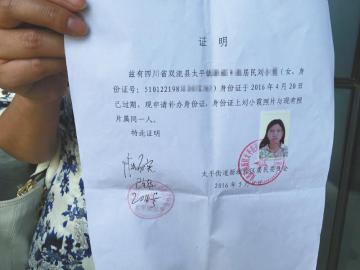 证明
兹有四川省双流县太平 居民刘小 （女，身
份证号：510122198 ）身份证于 2016 年 4 月 20 日
已过期，现申请补办身份证，身份证上刘小霞照片与现有照
片属同一人。
特此证明
太平街道 居民委员会
2016 年 5 月